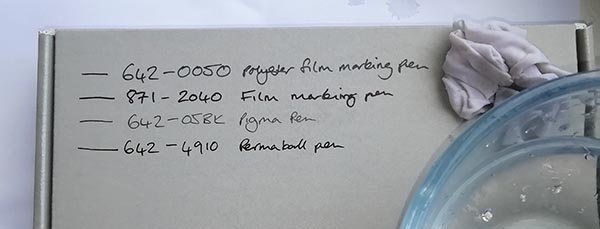 — 642-0050 Polyester film marking pen
— 871-2040 Film marking pen
— 642-05BK Pigma Pen
— 642-4910 Permaball pen